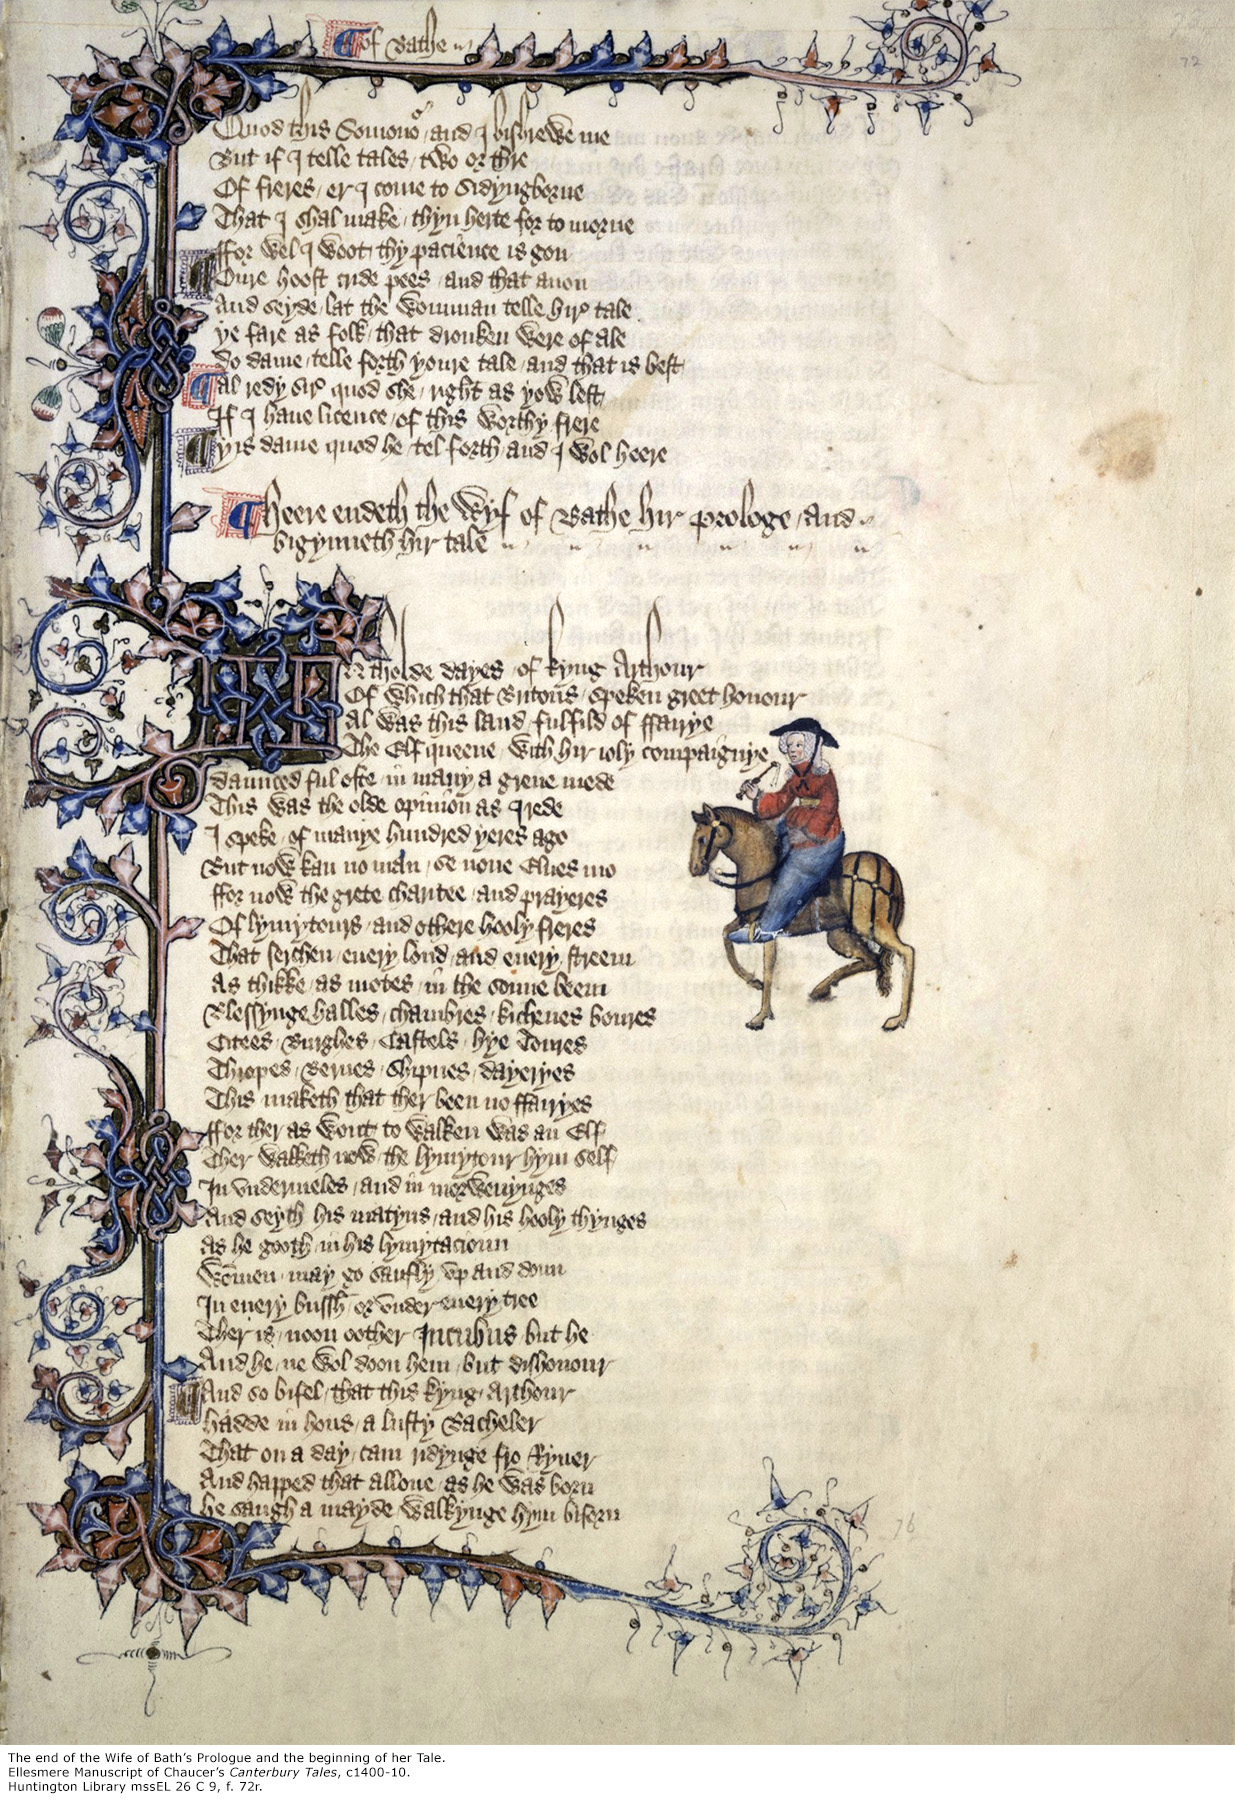 Of Bathe
72
Quod this Somonor / and I bishrewe me
But if I telle tales / two or thre
Of freres / er I come to Sidyngborne
That I shal make / thyn herte for to morne
ffor wel I woot / thy pacience is gon
Oure hoost cride pees / and that anon
And seyde / lat the womman telle hire tale
ye fare as folk / that dronken were of ale
Do dame / telle forth youre tale / and that is best
Al redy sire quod she / right as yow lest
If I haue licence / of this worthy frere
yis dame quod he / tel forth / and I wol heere
Heere endeth the Wyf of Bathe hir prologe / and
bigynneth hir tale
In tholde dayes / of kyng Arthour
Of which that Britons / speken greet honour
Al was this land / fulfild of ffairye
The Elf queene / with hir ioly compaignye
daunced ful ofte / in many a grene mede
This was the olde opinion as I rede
I speke / of manye hundred yeres ago
But now kan no man / se none Elues mo
ffor now the grete charitee / and prayeres
Of lymytours / and othere hooly freres
That serchen / euery lond / and euery streem
As thikke / as motes / in the sonne beem
Blessynge halles / chambres / kichenes boures
Citees / Burghes / Castels / hye Toures
Thropes / Bernes / Shipnes / dayeryes
This maketh that ther been no ffairyes
ffor ther as wont to walken was an Elf
Ther walketh now / the lymytour hym self
In vndermeles / and in morwenynges
And seyth his matyns / and his hooly thynges
as he gooth / in his lymytacioun
Wommen / may go saufly / vp and doun
In euery bussh / or vnder euery tree
Ther is / noon oother Incubus / but he
And he / ne wol doon hem / but dishonour
And so bifel / that this kyng / Arthour
hadde in hous / a lusty Bacheler
That on a day / cam ridynge fro Ryuer
And happed that allone / as he was born
he saugh a mayde / walkynge hym biforn
76
The end of the Wife of Bath’s Prologue and the beginning of her Tale.
Ellesmere Manuscript of Chaucer’s Canterbury Tales, c1400-10.
Huntington Library mssEL 26 C 9, f. 72r.